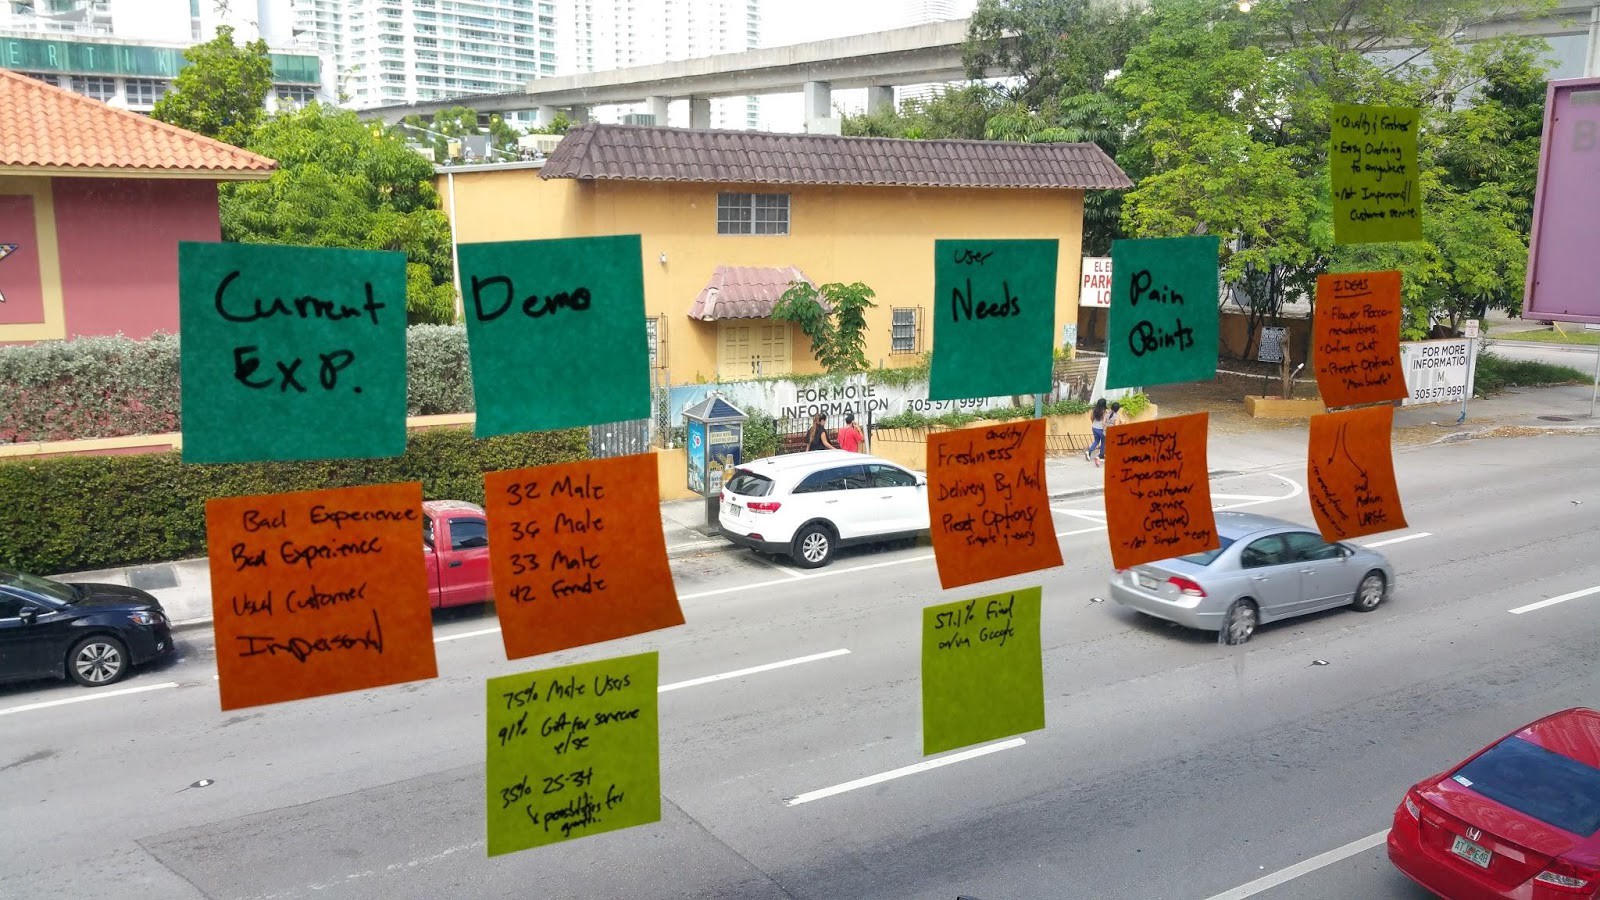 Current
Exp.
Bad Experience
Bad Experience
Usual Customer
Impersonal
Demo
32 Male
36 Male
33 Male
42 Female
75% Male Users
91% Gift for someone
else
35% 25-34
↳ possibilities for
growth.
User
Needs
Quality/
Freshness
Delivery By Mail
Preset Options/
Simple + easy
57.1% Find
on/via Google
Pain
Points
- Inventory
unavailable
- Impersonal
↳ customer
service
(returns)
- Not Simple + easy
• Quality & Freshness
• Easy Ordering
to anywhere
• Not Impersonal/
Customer service.
IDEAS
• Flower Recco-
mendations.
• Online Chat
• Preset Options
Small
Medium
LARGE
ERTIK
FOR MORE
INFORMATION 305 571 9991
EL E
PARK
LO
FOR MORE
INFORMATIO
M
305 571 9991